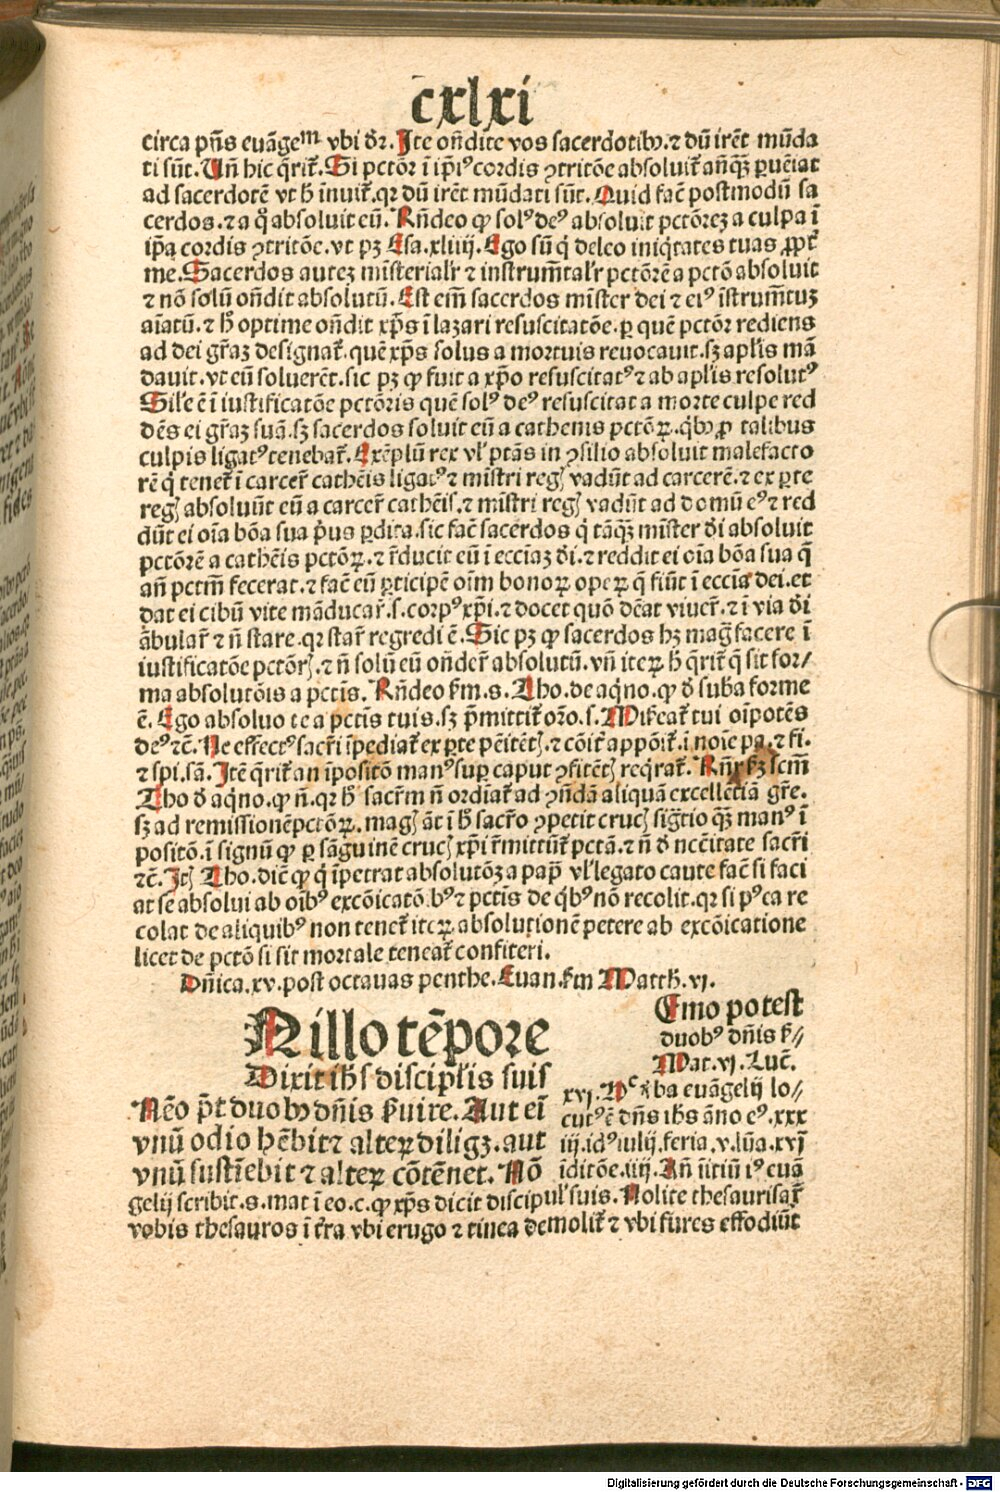 cxlxi
circa pñs euãgeᵐ vbi dr̃. Ite oñdite vos sacerdotibꝰ. ⁊ dũ irẽt mũda
ti sũt. Vñ hic q̃rit̃. Si pctõr ĩ ip̃iꝰ cordis ꝯtritõe absoluit̃ añqȝ ꝑueĩat
ad sacerdotẽ vt h̃ ĩnuit̃. qr dũ irẽt mũdati sũt. Quid facẽ postmodũ sa
cerdos. ⁊ a q̊ absoluit eũ. Rñdeo ꝙ solꝰ deꝰ absoluit pctõreȝ a culpa ĩ
ip̃a cordis ꝯtritõe. vt pȝ Esa. xliiij. Ego sũ q̇ deleo iniq̇tates tuas ꝓpt̃
me. Sacerdos auteȝ mĩsterialr̃ ⁊ instrum̃talr̃ pctõrẽ a pctõ absoluit
⁊ nõ solũ oñdit absolutũ. Est eĩ sacerdos mĩster dei ⁊ eiꝰ ĩstrum̃tuȝ
aĩatũ. ⁊ h̃ optime oñdit xp̃s ĩ lazari resuscitatõe. ꝑ quẽ pctõr rediens
ad dei gr̃aȝ designat̃. quẽ xp̃s solus a mortuis reuocauit. sȝ apl̃is mã
dauit. vt eũ soluerẽt. sic pȝ ꝙ fuit a xp̃o resuscitatꝰ ⁊ ab apl̃is resolutꝰ
Sil̃e ẽ ĩ iustificatõe pctõris quẽ solꝰ deꝰ resuscitat a morte culpe red
dẽs ei gr̃aȝ suã. sȝ sacerdos soluit eũ a cathenis pctõꝝ. q̇bꝰ ꝓ talibus
culpis ligatꝰ tenebat̃. Exẽplũ rex vl̃ ptãs in ꝯsilio absoluit malefacto
rẽ q̇ tenet̃ ĩ carcer̃ cathẽis ligatꝰ ⁊ mĩstri regꝭ vadũt ad carcerẽ. ⁊ ex ꝑte
regꝭ absoluũt eũ a carcer̃ cathẽis. ⁊ mĩstri regꝭ vadũt ad domũ eꝰ ⁊ red
dũt ei oĩa bõa sua p̃us ꝑdita. sic facẽ sacerdos q̇ tãqȝ mĩster d̃i absoluit
pctõrẽ a cathẽis pctõꝝ. ⁊ r̃ducit eũ ĩ eccĩaȝ d̃i. ⁊ reddit ei oĩa bõa sua q̃
añ pctm̃ fecerat. ⁊ facẽ eũ ꝑticipẽ oĩm bonoꝝ opeꝝ q̃ fiũt ĩ eccĩa dei. et
dat ei cibũ vite mãducar̃. s. corpꝰ xp̃i. ⁊ docet quõ dẽat viuer̃. ⁊ ĩ via d̃i
ãbular̃ ⁊ ñ stare. qr star̃ regredi ẽ. Sic pȝ ꝙ sacerdos hȝ mag̃ facere ĩ
iustificatõe pctõrꝭ. ⁊ ñ solũ eũ oñder̃ absolutũ. vñ iteꝝ h̃ q̃rit̃ q̃ sit for/
ma absolutõis a pctĩs. Rñdeo ẜm. s. Tho. de aq̇no. ꝙ d̃ suba forme
ẽ. Ego absoluo te a pctĩs tuis. sȝ p̃mittit̃ or̃o. s. Miẜeat̃ tui oĩpotẽs
deꝰ ⁊c̃. Ne effectꝰ sacr̃i ĩpediat̃ ex ꝑte pẽitẽtꝭ. ⁊ cõit̃ appõit̃. ĩ noĩe pa. ⁊ fi.
⁊ spi. sã. Itẽ q̃rit̃ an ĩpositõ manꝰ suꝑ caput ꝯfitẽtꝭ req̇rat̃. scm̃
Tho d̃ aq̇no. ꝙ ñ. qr h̃ sacr̃m ñ ordĩat̃ ad ꝯñdã aliquã excellẽtiã gr̃e.
sȝ ad remissionẽ pctõꝝ. magꝭ ãt ĩ h̃ sacr̃o ꝯpetit crucꝭ sig̃tio qȝ manꝰ ĩ
positõ. ĩ signũ ꝙ ꝑ sãguinẽ crucꝭ xp̃i r̃mittũt̃ pctã. ⁊ ñ d̃ ncc̃itate sacr̃i
⁊c̃. Itꝭ Tho. dic̃ ꝙ q̇ ĩpetrat absolutõȝ a pap̃ vl̃ legato caute facẽ si faci
at se absolui ab oĩbꝰ excõicatõbꝰ ⁊ pctĩs de q̇bꝰ nõ recolit. qr si pꝰea re
colat de aliquibꝰ non tenet̃ iteꝝ absolutionẽ petere ab excõicatione
licet de pctõ si sit mortale teneat̃ confiteri.
Dñica. xv. post octauas penthe. Euan. ẜm Matth. vi.
IN illo tẽpore
Dixit ihs discipl̃is suis
Nẽo p̃t duobꝰ dñis ẜuire. Aut eĩ
vnũ odio hẽbit ⁊ alteꝝ diligȝ. aut
vnũ sustĩebit ⁊ alteꝝ cõtẽnet. Nõ
Emo potest
duobꝰ dñis ẜ//
Mat. vj. Luc̃.
xvj. Hᶜ v̾ba euãgelij lo/
cutꝰ ẽ dñs ihs ãno eꝰ. xxx
iij. idꝰ iulij. feria. v. lũa. xvj
ĩditõe. iiij. Añ ĩitiũ iꝰ euã
gelij scribit. s. mat ĩ eo. c. ꝙ xp̃s dicit discipul̃ suis. Nolite thesaurisar̃
vobis thesauros ĩ t̃ra vbi erugo ⁊ tinea demolit̃ ⁊ vbi fures effodiũt
Digitalisierung gefördert durch die Deutsche Forschungsgemeinschaft - DFG